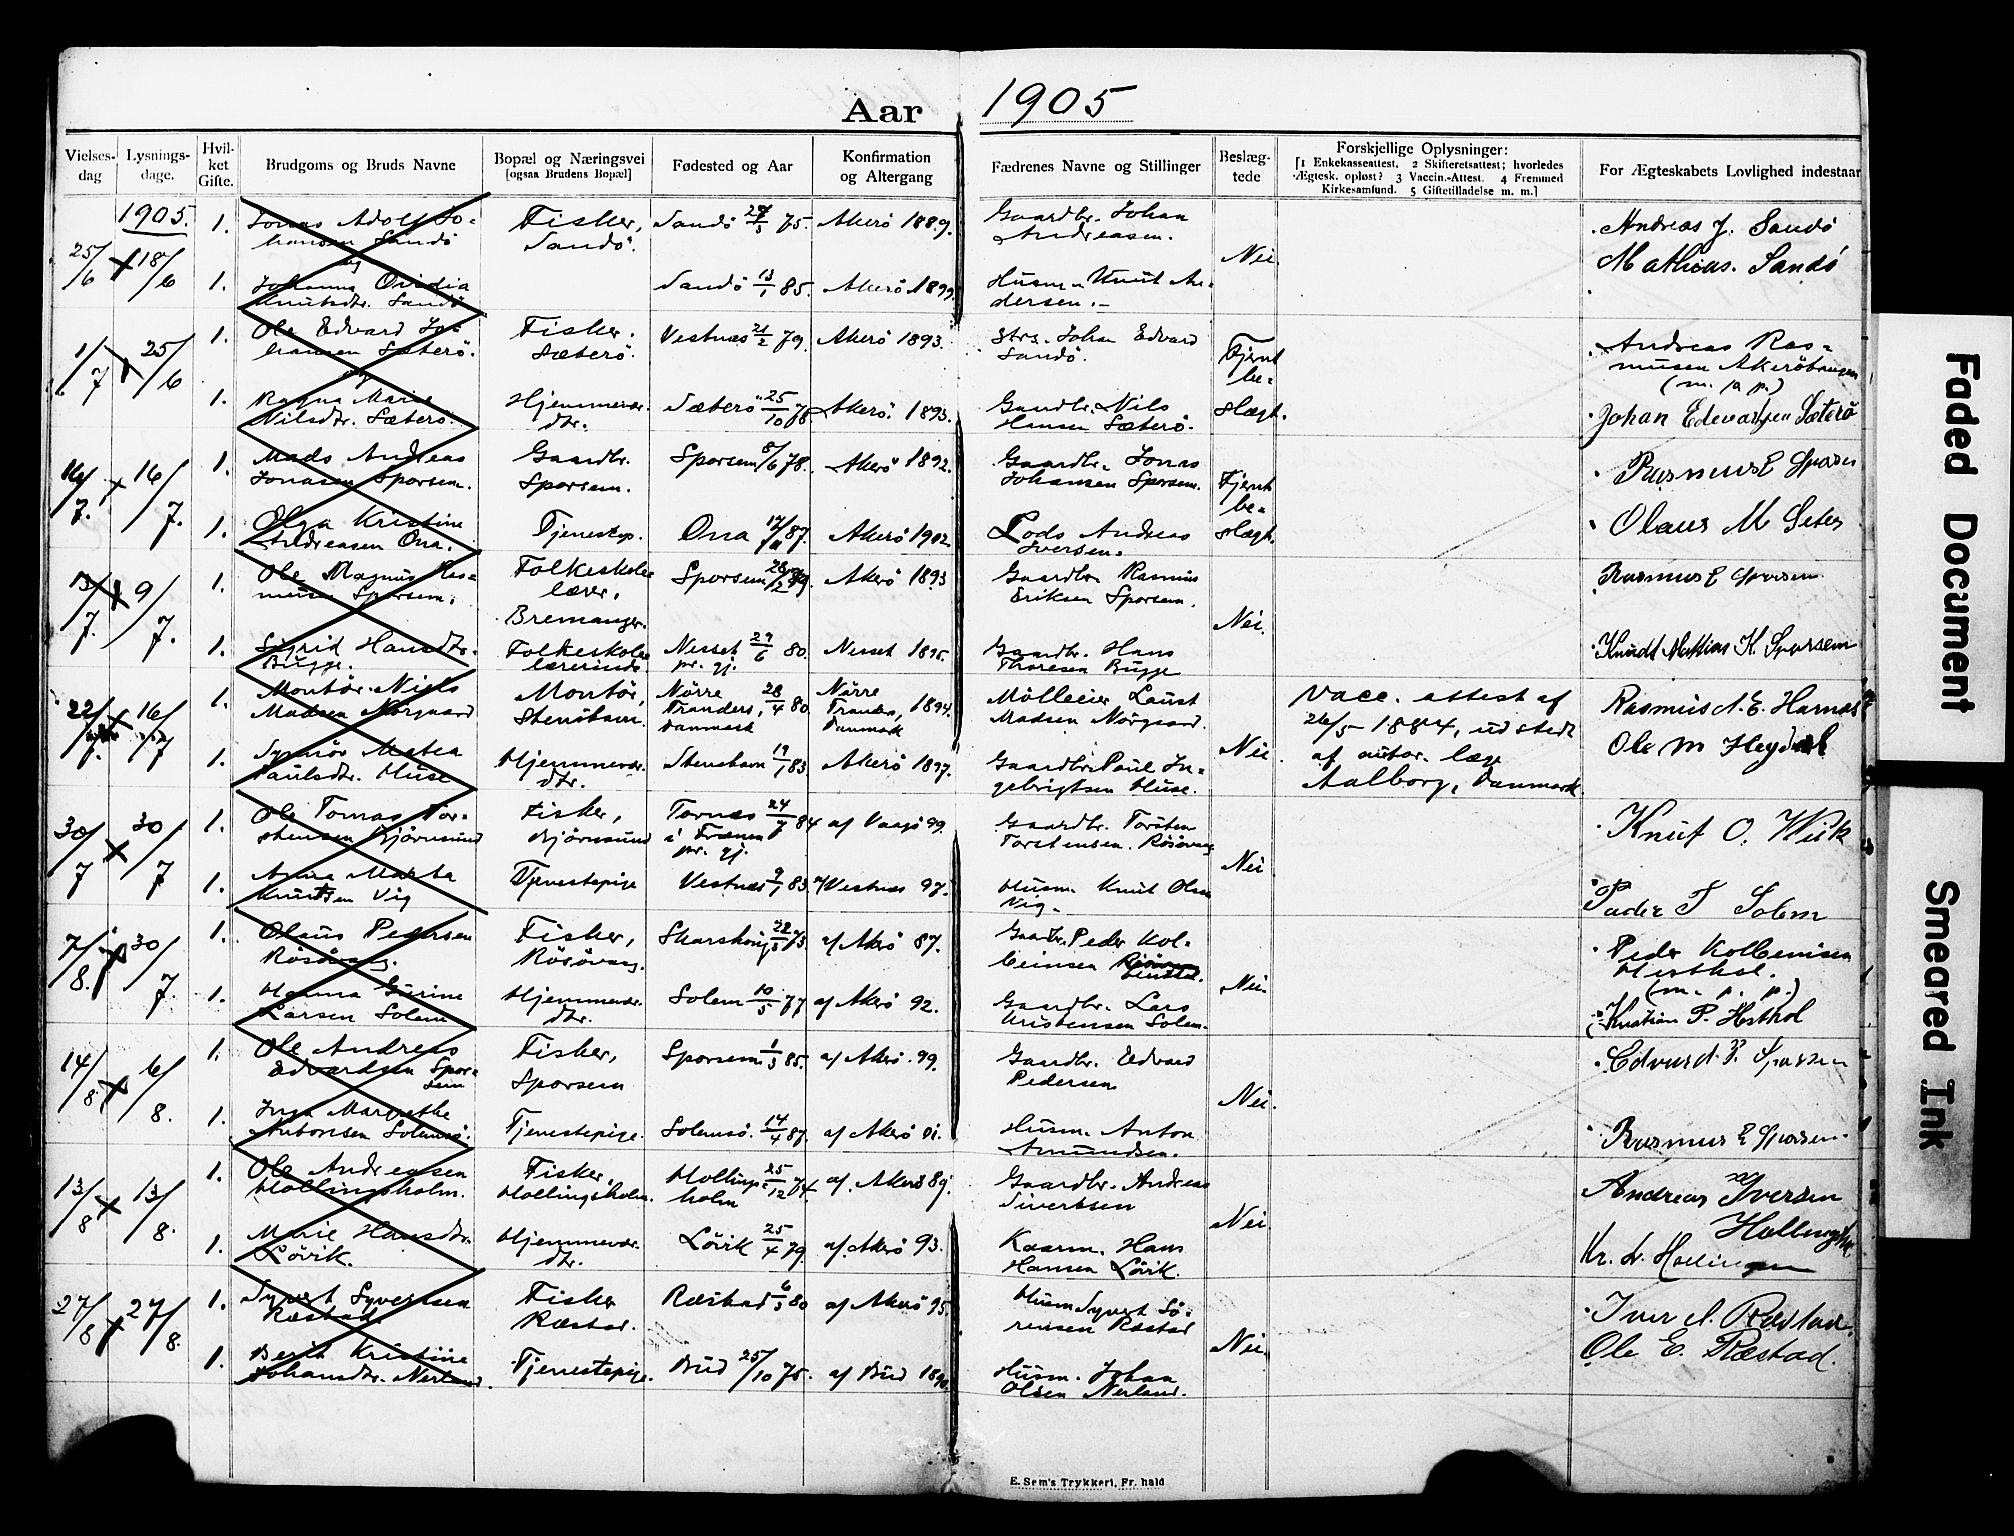 Aar 1905
Vielses-dag
Lysnings-dage.
Hvil-ket Gifte.
Brudgoms og Bruds Navne
Bopæl og Næringsvei [ogsaa Brudens Bopæl]
Fødested og Aar
Konfirmation og Altergang
Fædrenes Navne og Stillinger
Beslæg-tede
Forskjellige Oplysninger:
[1 Enkekasseattest. 2 Skifteretsattest; hvorledes
Ægtesk. opløst? 3 Vaccin.-Attest. 4 Fremmed
Kirkesamfund. 5 Giftetilladelse m. m.]
For Ægteskabets Lovlighed indestaar
1905.
25/6 18/6 1. Jonas Adolf Jo-
hansen Sandö
og
Fisker,
Sandö.
Sandö 75. Akerö 1889.
Gaardbr. Johan
Andreasen.
Nei.
Andreas J. Sandö
Mathias. Sandö
1. Johanna
Knutsdtr. Sandö
Sandö 13/1 85. Akerö 1899.
Husm. Knut An-
dersen.
1/7 25/6 1. Ole Edvard Jo-
hansen Sæterö.
og
Fisker.
Sæterö.
Vestnæs 21/2 79. Akerö 1893.
Strs. Johan Edvard
Sandö.
Fjernt
be-
slægt.
Andreas Ras-
musen
(m. p. p.)
1. Ragna Marie
Nilsdtr. Sæterö.
Hjemmevær.
dtr.
Sæterö 25/10 78. Akerö. 1893.
Gaardbr. Nils
Hansen Sæterö.
Johan Edvardsen Sæterö
16/7 1. Mads Andreas
Jonasen Sporsem.
Gaardbr.
Sporsem.
Sporsem 8/6 78. Akerö 1892.
Gaardbr. Jonas
Johansen Sporsem.
Fjernt
be-
slægt.
Rasmus E Sporsem
1. Olga Kristine
Andreasen Ona.
Tjenestep.
Ona 87. Akerö 1902.
Lods Andreas
Iversen.
Olaus M Seter
13/7. 9/7. 1. Ole Magnus Ras-
musen Sporsem.
Folkeskole-
lærer,
Bremanger.
Sporsem 28/2 79 Akerö 1893
Gaardbr. Rasmus
Eriksen Sporsem.
Nei.
Rasmus E Sporsem
1. Sigrid Hansdtr.
Bugge.
Folkeskole
lærerinde
Nesset 29/6 80.
pr. gj.
Nesset 1895.
Gaardbr. Hans
Thoresen Bugge
Knudt Mathias K. Sporsem
22/7. 16/7 1. Montör Niels
Madsen Nörgaard
Montör,
Stenshavn.
Nörre
Tranders, 28/4 80.
Danmark
Nörre
Tranders, 1894.
Danmark
Mölleeier Laust
Madsen Nörgaard.
Nei.
Vacc. attest af
26/5 1884, udstedt
af autor. læge
Aalborg, Danmark
Rasmus N. E. Harnæs
Ole M Heydal
1. Synnöv Matea
Paulsdtr. Huse
Hjemmevær.
dtr.
Stenshavn 19/1 83. Akerö 1897.
Gaardbr. Paul In-
gebrigtsen Huse.
30/7 30/7 1. Ole Tornæs Tor-
stensen Björnsund
Fisker,
Björnsund
Tornæs 24/7 84
i Frænen
pr. gj.
af Vaagö 99.
Gaardbr. Torsten
Torstensen. Rösövaag
Nei
Knut O. Wiik
1. Anna Marta
Knutsen Vig
Tjenestepige
Vestnæs 9/1 83. af Vestnæs 97.
Husm. Knut Olsen
Vig.
Peder T Solem
7/8. 30/7. 1. Olaus Pedersen
Rösövaag.
Fisker,
Rösövaag.
22/3 73 af Akerö 87.
Gaardbr. Peder Kol-
beinsen
Nei.
Peder Kolbeinsen
Hesthol.
(m. p. p.)
1. Hanna Gurine
Larsen Solem
Hjemmevær.
dtr.
Solem 10/5 77 af Akerö 92.
Gaardbr. Lars
Kristensen Solem.
Kristian P. Hesthol
14/8 6/8. 1. Ole Andreas
Edvardsen Spor-
sem
Fisker,
Sporsem
Sporsem 1/3 85. af Akerö 99.
Gaardbr. Edvard
Pedersen
Nei.
Edvard. P. Sporsem
1. Inga Margrethe
Antonsen Solemsö.
Tjenestepige.
Solemsö. 14/4 87. af Akerö 01.
Husm. Anton
Amundsen.
Rasmus E Sporsem.
13/8 13/8. 1. Ole Andreasen
Hollingsholm.
Fisker,
Hollingsholm.
Hollings-
holm 25/12 74. af. Akerö 89.
Gaardbr. Andreas
Sivertsen
Nei.
Andreas Iversen
1. Marie Hansdtr.
Lövik.
Hjemmevær.
dtr.
Lövik 25/4 79. af. Akerö 93.
Kaarm. Hans
Hansen Lövik.
27/8 27/8. 1. Syvert Syvertsen
Ræstad.
Fisker
Ræstad.
Ræstad 6/3 80 af Akerö 95.
Husm Syvert Sö-
rensen Ræstad
Nei.
Iver A. Ræstad.
Ole E. Ræstad.
1. Berit Kristine
Johansdtr. Nerland.
Tjenestepige.
Bud 25/10 75. af Bud 1890
Husm. Johan
Olsen Nerland.
E. Sem's Trykkeri, Fr. hald
Faded Document
Smeared Ink